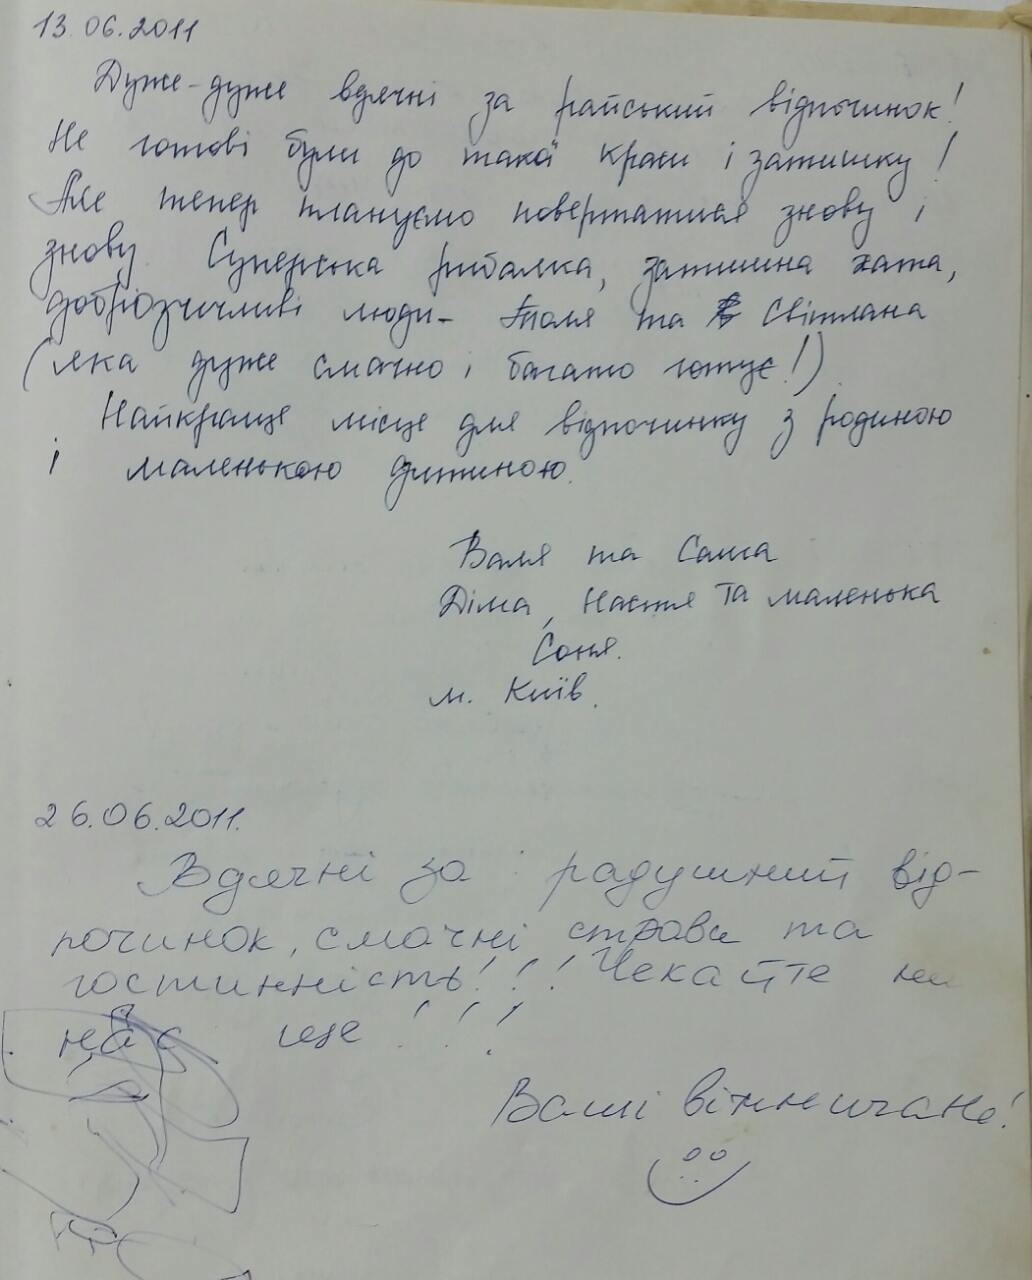 13.06.2011
Дуже-дуже вдячні за райський відпочинок!
Не готові були до такої краси і затишку!
Але тепер плануємо повертатися знову і
знову. Суперська рибалка, затишна хата,
доброзичливі люди - Толя та Світлана
(яка дуже смачно і багато готує!)
Найкраще місце для відпочинку з родиною
і маленькою дитиною.
Валя та Саша
Діма, Настя та маленька
Соня.
м. Київ.
26.06.2011.
Вдячні за радушний від-
починок, смачні страви та
гостинність!!! Чекайте на
нас ще!!!
Ваші вінничани!